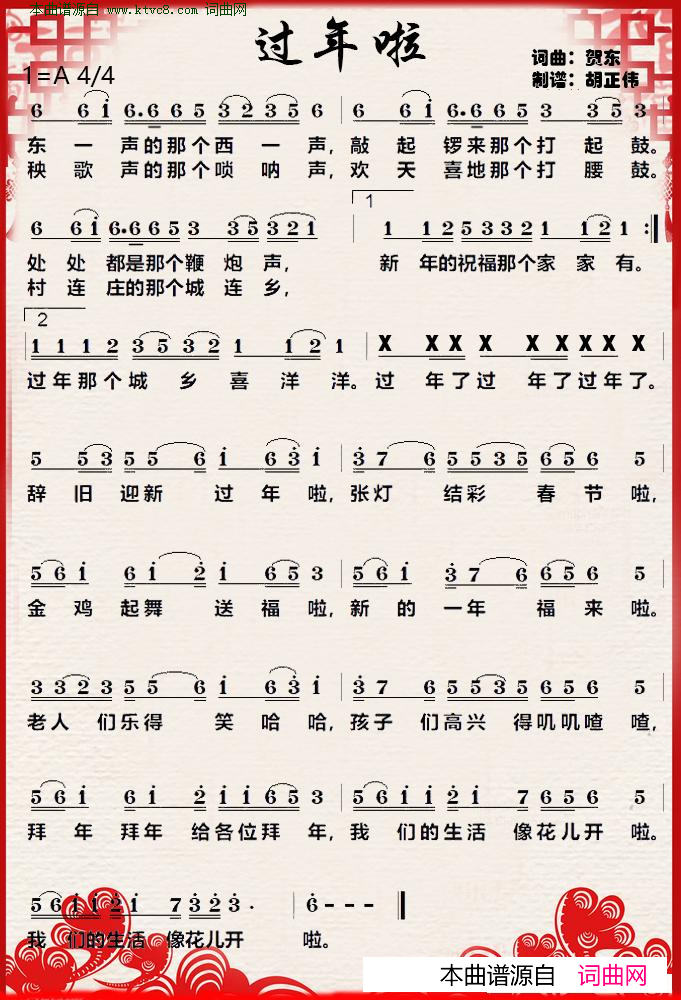 本曲谱源自 www.ktvc8.com 词曲网
过年啦
词曲：贺东
1=A 4/4
制谱：胡正伟
6 6 i 6. 6 6 5 3 2 3 5 6 | 6 6 i 6. 6 6 5 3 3 5 3
东一声的那个西一声，敲起锣来那个打起鼓。
秧歌声的那个唢呐声，欢天喜地那个打腰鼓。
1
6 6 i 6. 6 6 5 3 3 5 3 2 1 | 1 1 2 5 3 3 2 1 1 2 1 :|
处处都是那个鞭炮声，新年的祝福那个家家有。
村连庄的那个城连乡，
2
| 1 1 1 2 3 5 3 2 1 1 2 1 | X X X X X X X X X |
过年那个城乡喜洋洋。过年了过年了过年了。
5 5 3 5 5 6 i 6 3 i | 3 7 6 5 5 3 5 6 5 6 5 |
辞旧迎新过年啦，张灯结彩春节啦，
5 6 i 6 i 2 i 6 5 3 | 5 6 i 3 7 6 6 5 6 5 |
金鸡起舞送福啦，新的一年福来啦。
3 3 2 3 5 5 6 i 6 3 i | 3 7 6 5 5 3 5 6 5 6 5 |
老人们乐得笑哈哈，孩子们高兴得叽叽喳喳，
5 6 i 6 i 2 i i 6 5 3 | 5 6 i i 2 i 7 6 5 6 5 |
拜年拜年给各位拜年，我们的生活像花儿开啦。
5 6 i i 2 i 7 3 2 3 . | 6 - - - ‖
我们的生活像花儿开啦。
本曲谱源自 词曲网